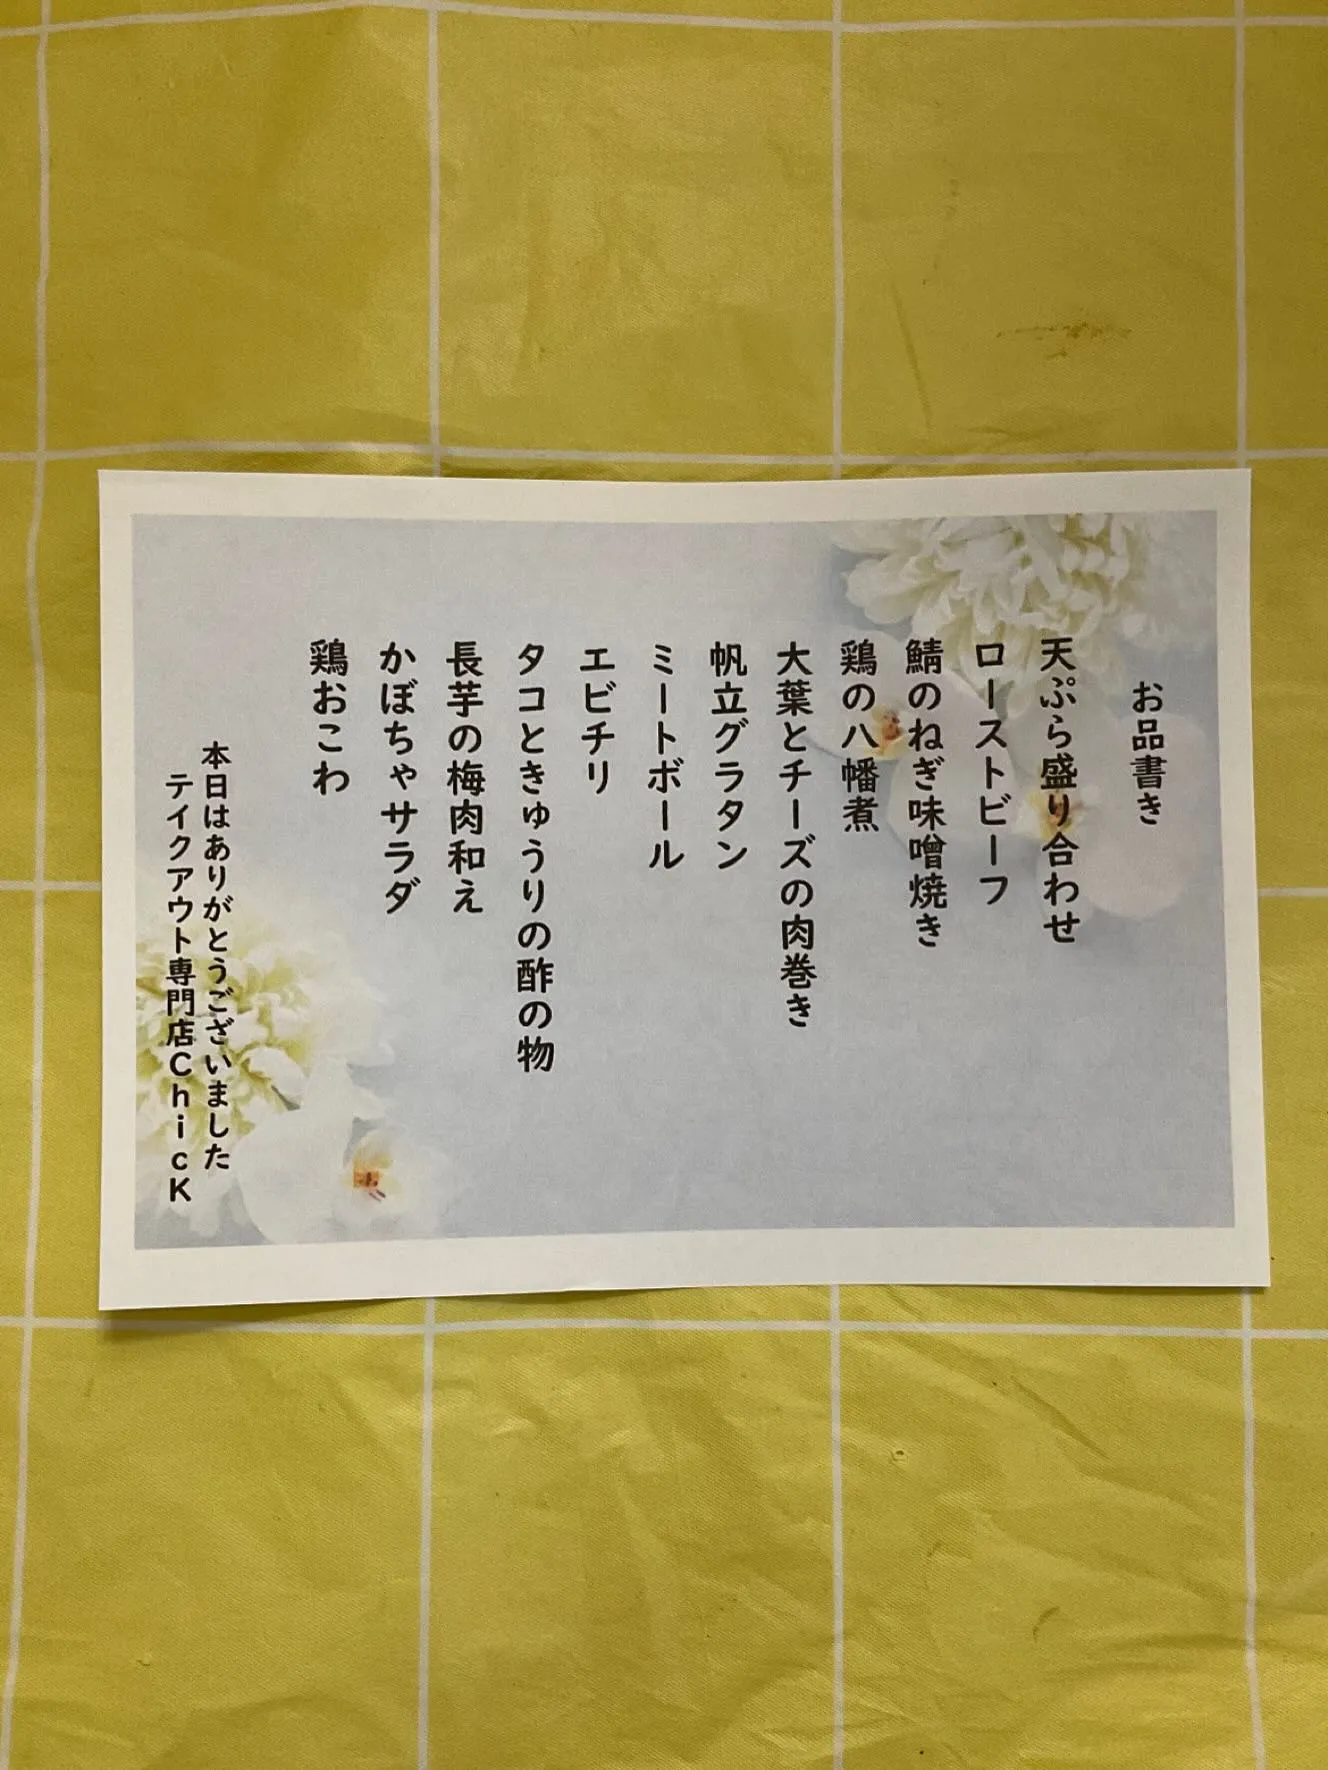 お品書き
天ぷら盛り合わせ
ローストビーフ
鯖のねぎ味噌焼き
鶏の八幡煮
大葉とチーズの肉巻き
帆立グラタン
ミートボール
エビチリ
タコときゅうりの酢の物
長芋の梅肉和え
かぼちゃサラダ
鶏おこわ
本日はありがとうございました
テイクアウト専門店ChicK